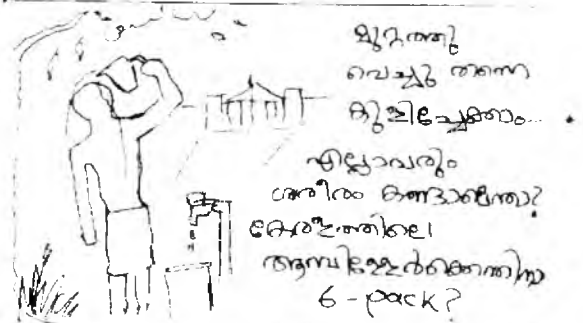 മുറ്റത്തു
വെച്ചു തന്നെ
കുളിച്ചേക്കാം...
എല്ലാവരും
ശരീരം കണ്ടാലെന്താ?
കേരളത്തിലെ
ആമ്പിള്ളേർക്കെന്തിനാ
6-pack?